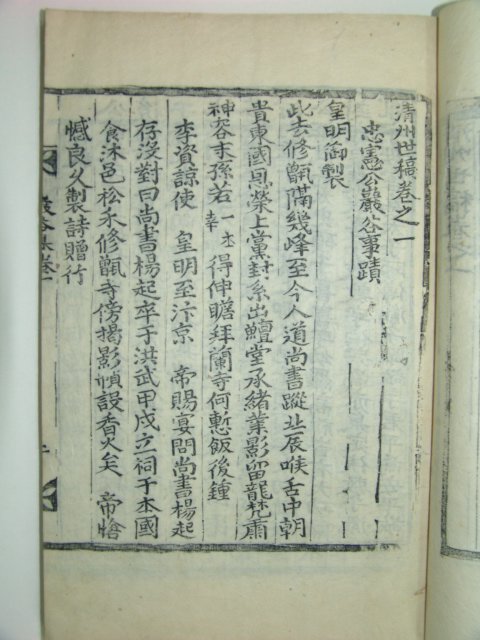 清州世稿卷之一
忠憲公巖谷事蹟
皇明御製
此去修甑隔幾峰至今人道尚書蹤北辰喉舌中朝
貴東國恩榮上黨封系出鱣堂承緖業影留龍梵肅
神容末孫若一本幸得伸瞻拜蘭寺何慙飯後鍾
李資諒使 皇明至汴京 帝賜宴問尚書楊起
存沒對曰尚書楊起卒于洪武甲戌立祠于本國
食沐邑松永修甑寺傍揭影幀設香火矣 帝愴
憾良久製詩贈行
巖谷集卷一